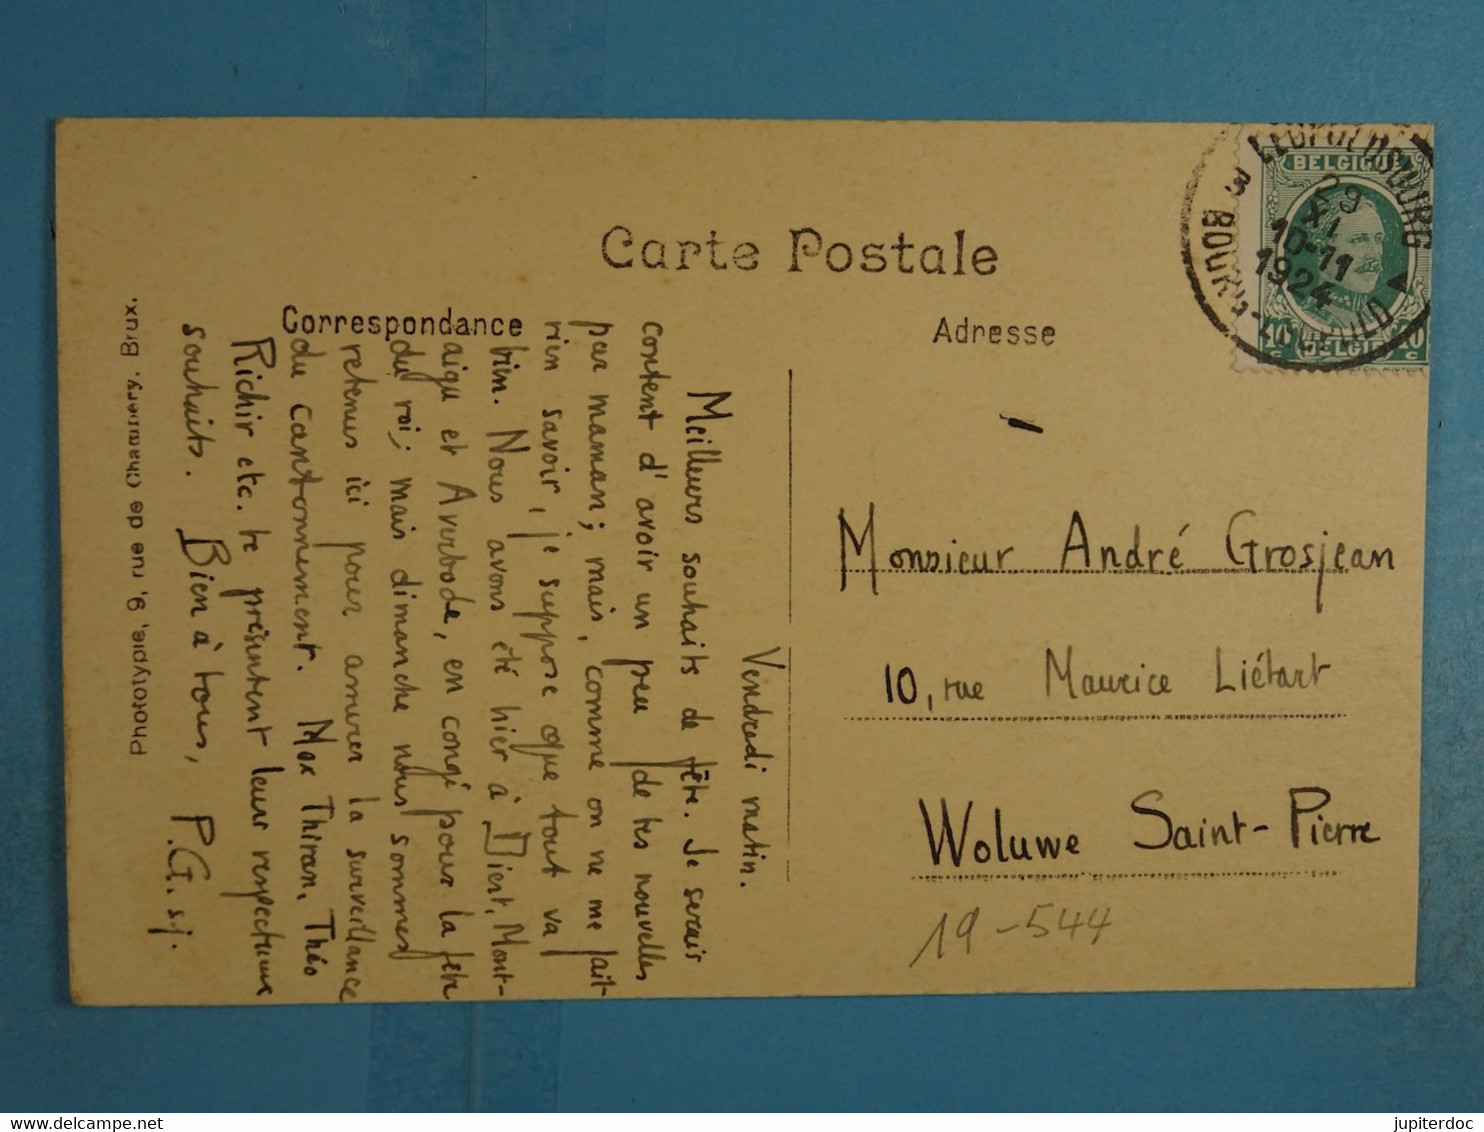 Carte Postale
Correspondance
Adresse
Vendredi matin.
Meilleurs souhaits de fête. Je serais
content d'avoir un peu de tes nouvelles
par maman; mais, comme on ne me fait
rien savoir, je suppose que tout va
bien. Nous avons été hier à Diest, Mont-
aigu et Averbode, en congé pour la fête
du roi; mais dimanche nous sommes
retenus ici pour assurer la surveillance
du cantonnement. Max Thiran, Théo
Richir etc. te présentent leurs respectueux
souhaits. Bien à tous, P.G. sj.
Phototypie, 6, rue de Chambéry, Brux.
Monsieur André Grosjean
10, rue Maurice Liétart
Woluwe Saint-Pierre
19-544
LEOPOLDSBURG
3 BOURG-LEOPOLD
29
XI
10-11
1924
BELGIQUE
BELGIE
10 c 10 c
jupiterdoc